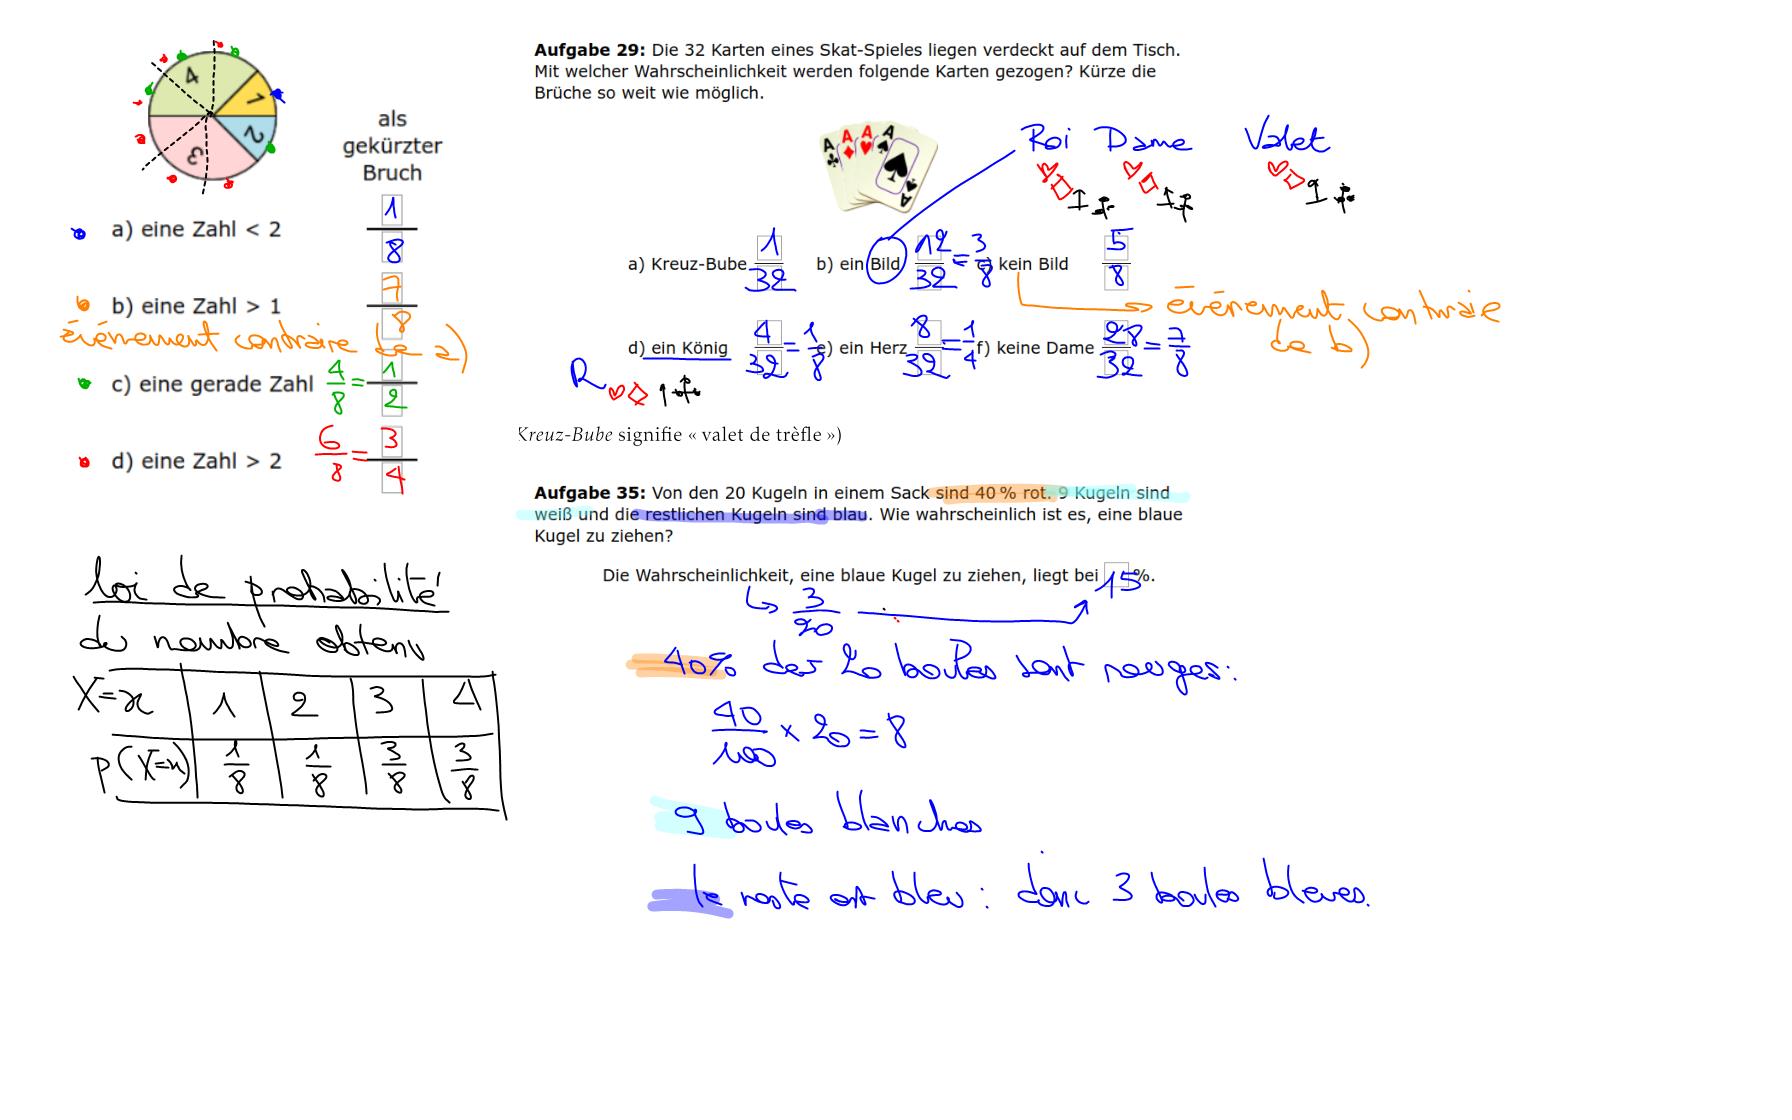 4
1
2
3
als
gekürzter
Bruch
a) eine Zahl < 2
1/8
b) eine Zahl > 1
7/8
événement contraire de a)
c) eine gerade Zahl 4/8 = 1/2
d) eine Zahl > 2 6/8 = 3/4
loi de probabilité
du nombre obtenu
X=x 1 2 3 4
p(X=x) 1/8 1/8 3/8 3/8
Aufgabe 29: Die 32 Karten eines Skat-Spieles liegen verdeckt auf dem Tisch.
Mit welcher Wahrscheinlichkeit werden folgende Karten gezogen? Kürze die
Brüche so weit wie möglich.
A A A A
A
Roi Dame Valet
a) Kreuz-Bube 1/32 b) ein Bild 12/32 = 3/8 c) kein Bild 5/8
événement contraire
de b)
d) ein König 4/32 = 1/8 e) ein Herz 8/32 = 1/4 f) keine Dame 28/32 = 7/8
R ♡ ◇
Kreuz-Bube signifie « valet de trèfle »)
Aufgabe 35: Von den 20 Kugeln in einem Sack sind 40 % rot. 9 Kugeln sind
weiß und die restlichen Kugeln sind blau. Wie wahrscheinlich ist es, eine blaue
Kugel zu ziehen?
Die Wahrscheinlichkeit, eine blaue Kugel zu ziehen, liegt bei 15 %.
↳ 3/20
40% des 20 boules sont rouges :
40/100 × 20 = 8
9 boules blanches
le reste est bleu : donc 3 boules bleues.